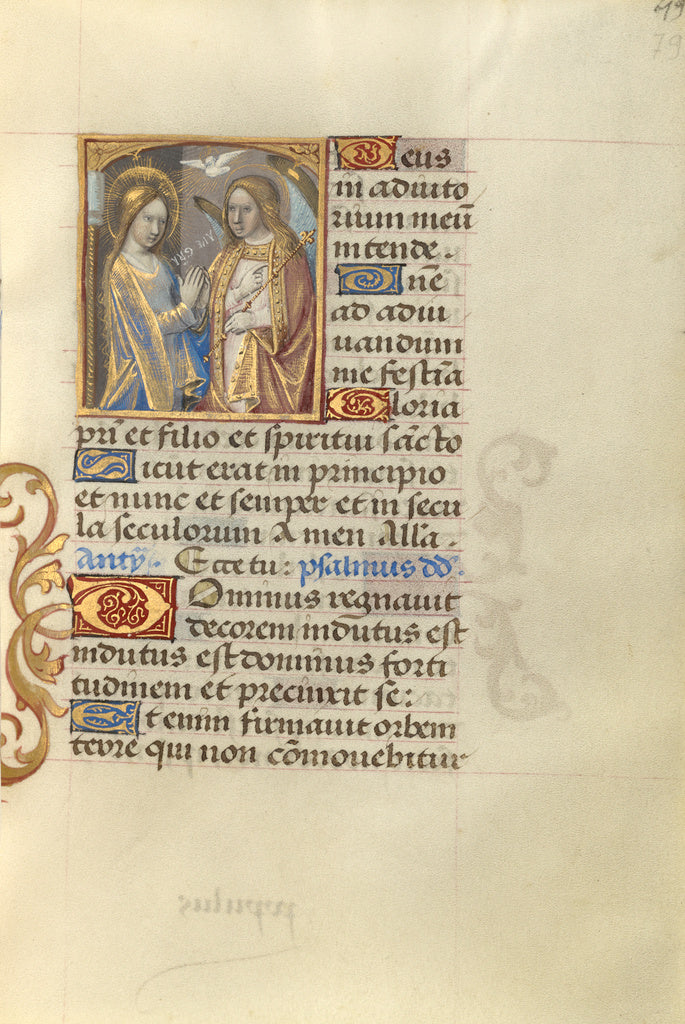 79
79
AVE GRA
Deus
in adiuto
rium meū
intende.
Dnē
ad adiu
uandum
me festīa
Gloria
pri et filio et spiritui sācto
Sicut erat in principio
et nunc et semper et in secu
la seculorum Amen Alla.
Antȳ. Ecce tu: psalmus dd.
Dominus regnauit
decorem indutus est
indutus est dominus forti
tudinem et precinxit se:
Etenim firmauit orbem
terre qui non cōmouebitur
populus